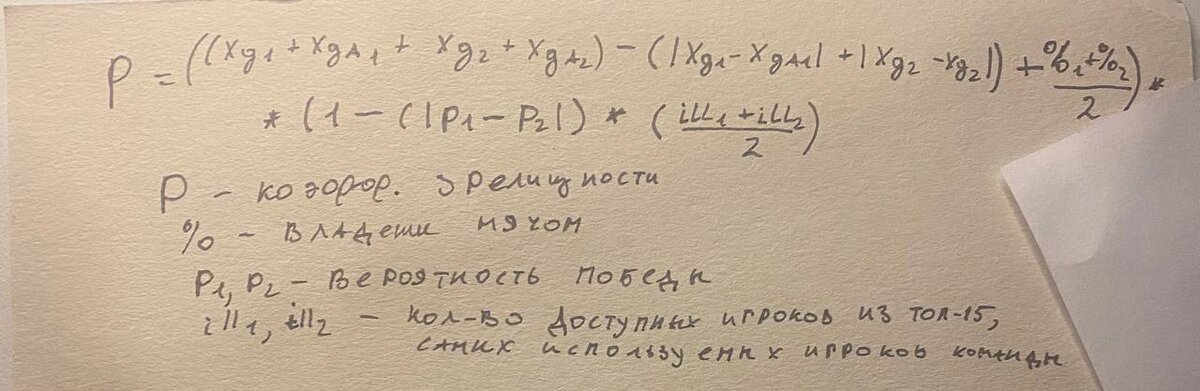 P = ((xg₁ + xgA₁ + xg₂ + xgA₂) - (|xg₁ - xgA₁| + |xg₂ - xg₂|) + (%₁ + %₂)/2) *
* (1 - (|P₁ - P₂|) * ((ill₁ + ill₂)/2)
P - коэффф. зрелищности
% - владеши мячом
P₁, P₂ - вероятность победы
ill₁, ill₂ - кол-во доступных игроков из топ-15,
самих используемых игроков команды